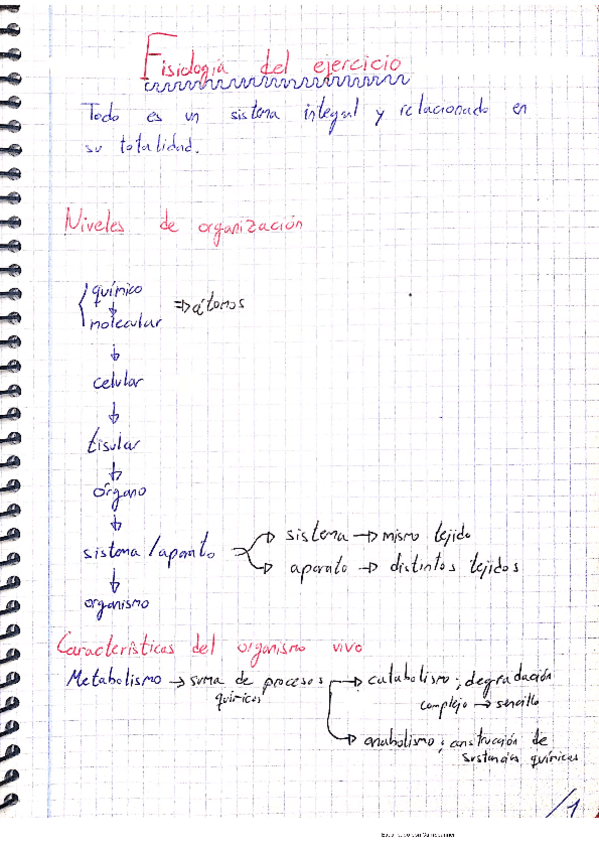 Fisiología del ejercicio
Todo es un sistema integral y relacionado en
su totalidad.
Niveles de organización
químico
↓
molecular ⇒ átomos
↓
celular
↓
tisular
↓
órgano
↓
sistema / aparato → sistema → mismo tejido
→ aparato → distintos tejidos
↓
organismo
Características del organismo vivo
Metabolismo → suma de procesos químicos → catabolismo; degradación
complejo → sencillo
→ anabolismo; construcción de
sustancias químicas
/1